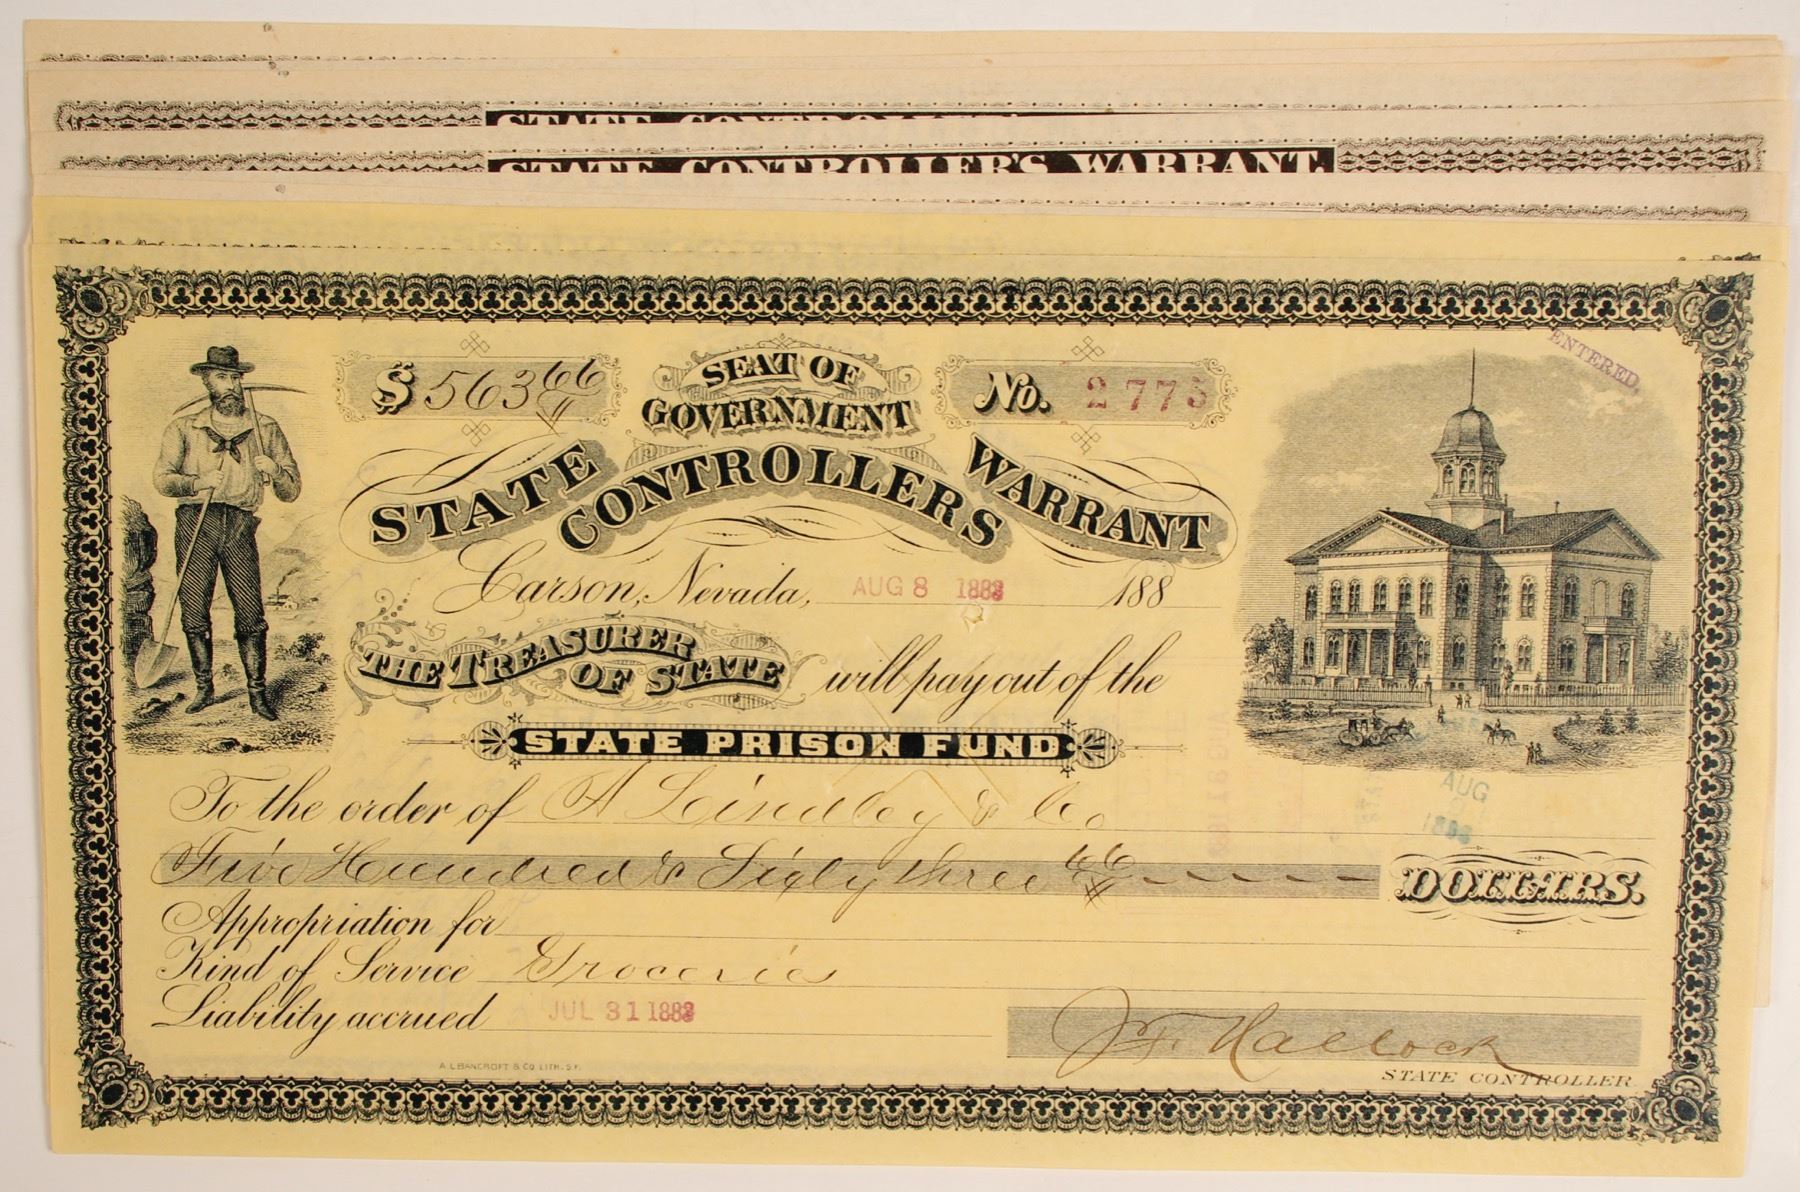 STATE CONTROLLER'S
STATE CONTROLLER'S WARRANT.
ENTERED.
$ 563 66/
SEAT OF
GOVERNMENT
No. 2775
STATE CONTROLLERS WARRANT
Carson, Nevada, AUG 8 1883 188
THE TREASURER
OF STATE will pay out of the
STATE PRISON FUND
AUG
To the order of A Lindley & Co
Five Hundred & Sixty three 66/
DOLLARS.
Appropriation for
Kind of Service Groceries
Liability accrued JUL 31 1883
J.F. Hallock
A.L. BANCROFT & CO. LITH. S.F.
STATE CONTROLLER.